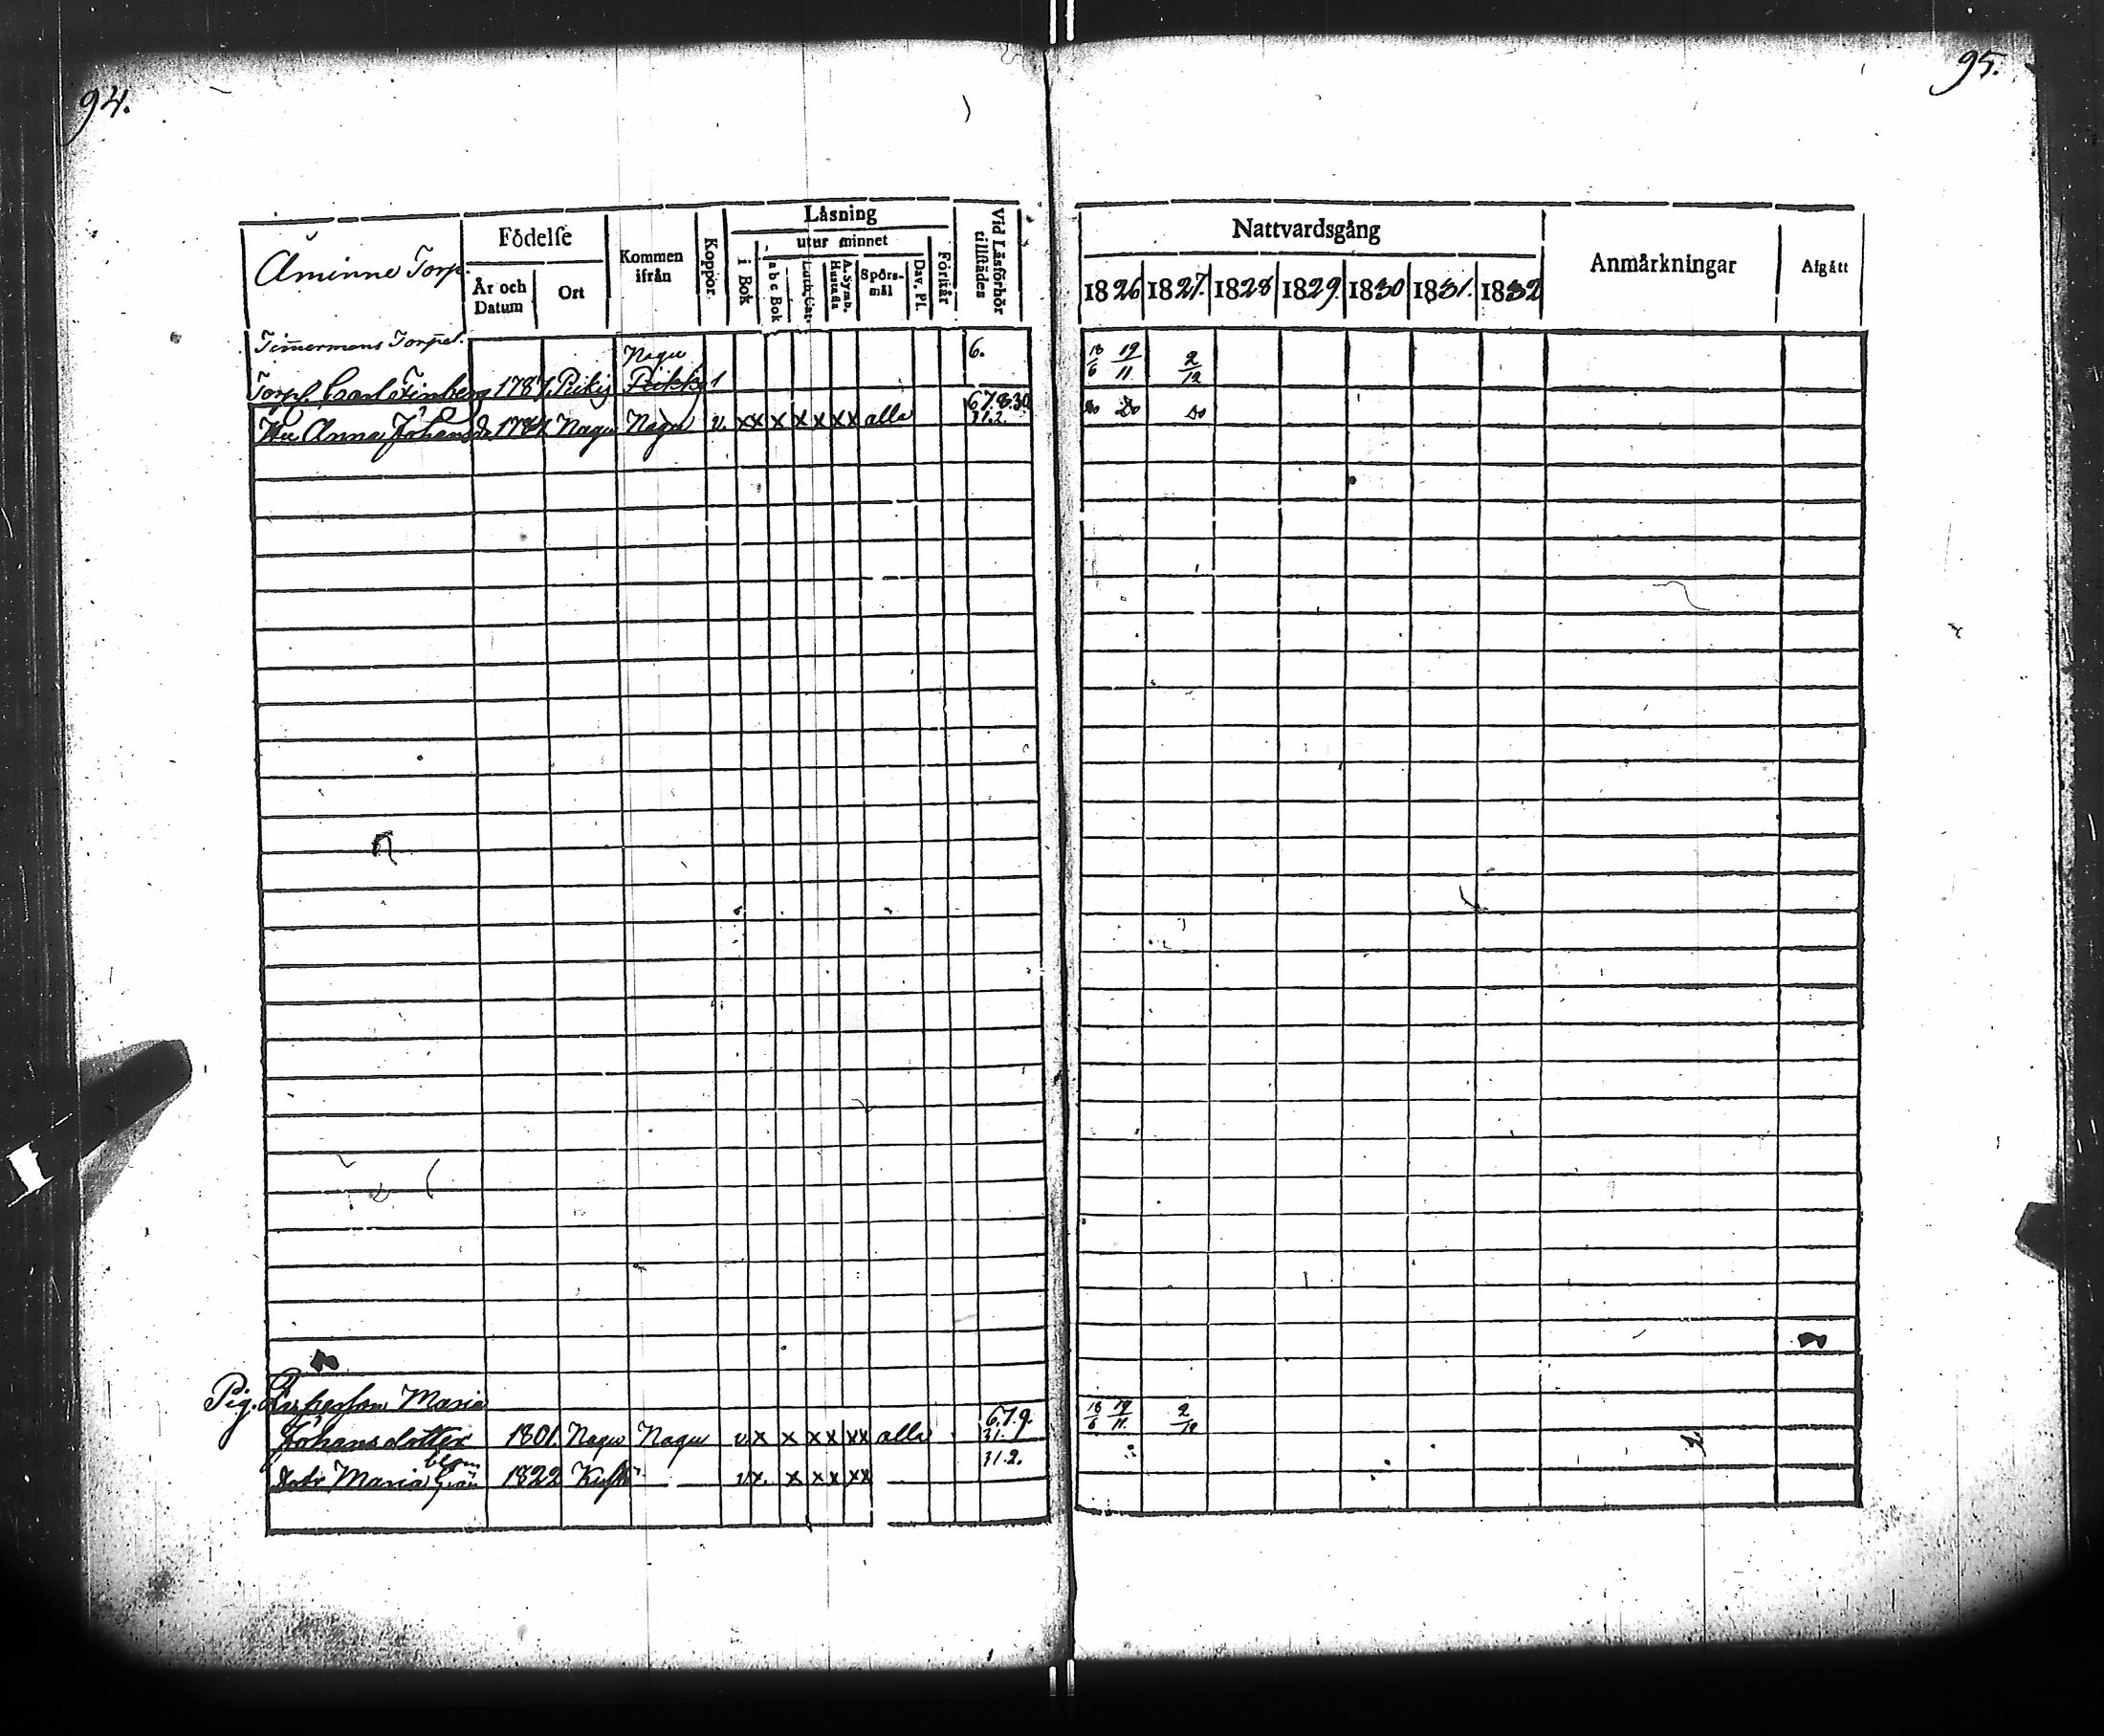 94.
95.
Åminne Torp.
Födelse
År och Datum
Ort
Kommen ifrån
Koppor.
Låsning
utur minnet
i Bok
a b c Bok
Luth. Cat.
A. Symb. Hustafla
Spörs-mål
Dav. Pl.
Förstår
Vid Läsförhör tillstädes
Nattvardsgång
1826 1827. 1828 1829. 1830 1831. 1832
Anmärkningar
Afgått
Tim̅ermans Torpet.
Nagu 6. 18/6 19/11 2/12
Torp. Carl Finberg 1787. Pikis
Hu Anna Johansdr Nagu Nagu v. xx x x x xx alla 6.7.8.30 Do Do Do
31.2.
Pig. Maria
Johansdotter 1801. Nagu Nagu v x x xx xx alla 6.7.9. 18/6 19/11. 2/12
31.
31.2.
dotr Maria 1822 v x. x xx xx